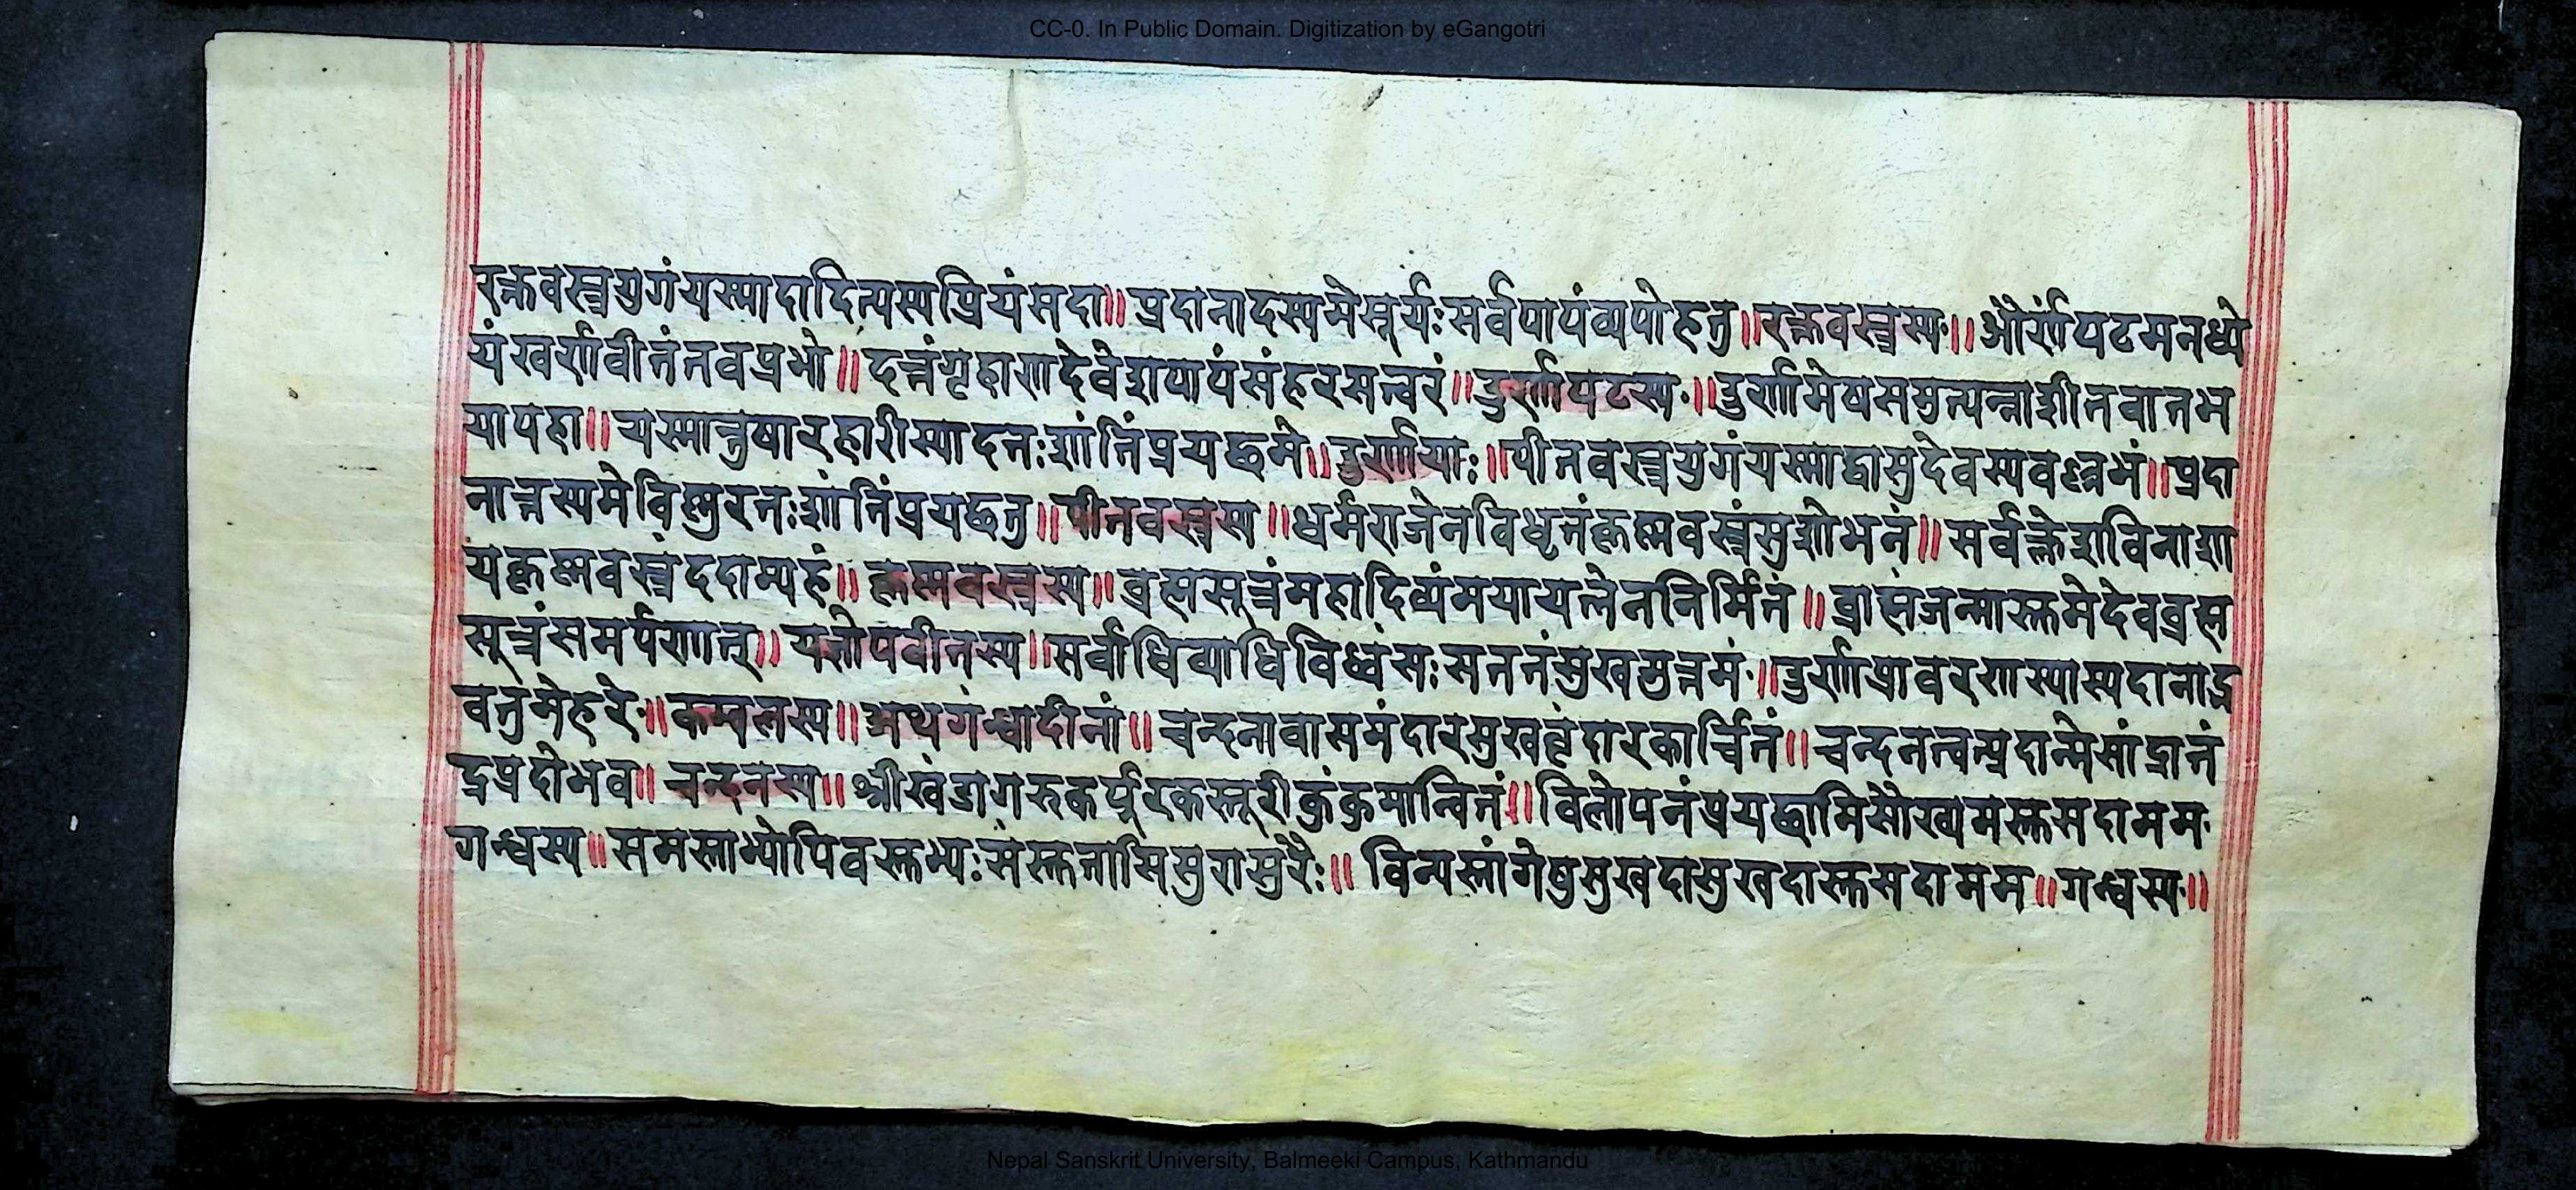 CC-0. In Public Domain. Digitization by eGangotri
रक्तवस्त्रयुगंयस्मादादित्यस्यप्रियंसदा॥ प्रदानादस्यमेसूर्यः सर्वपापंव्यपोहतु॥ रक्तवस्त्रस्य॥ और्णपटमनर्घ्ये
यंस्वर्णवीतंनवप्रभो॥ दत्तंगृहाणदेवेशपापंसंहरसत्त्वरं॥ उर्णापटस्य॥ उर्णामेषसमुत्पन्नाशीतवातभ
यापहा॥ यस्मात्तुषारहारीस्यादतःशांतिंप्रयछमे॥ उर्णायाः॥ पीतवस्त्रयुगंयस्माद्वासुदेवस्यवल्लभं॥ प्रदा
नात्तस्यमेविष्णुरतःशांतिंप्रयछतु॥ पीतवस्त्रस्य॥ धर्मराजेनविधृतंकृष्णवस्त्रंसुशोभनं॥ सर्वक्लेशविनाशा
यकृष्णवस्त्रंददाम्यहं॥ कृष्णवस्त्रस्य॥ ब्रह्मसूत्रंमहादिव्यंमयायत्नेननिर्मितं॥ ब्राह्मंजन्मास्तुमेदेवब्रह्म
सूत्रंसमर्पणात्॥ यज्ञोपवीतस्य॥ सर्वाधिव्याधिविध्वंसःसततंसुखमुत्तमं॥ उर्णाप्रावरणस्यास्यदानाद्भ
वतुमेहरे॥ कम्बलस्य॥ अथगन्धादीनां॥ चन्दनावासमंदारसुखवृंदारकार्चितं॥ चन्दनत्वत्प्रदान्मेसांद्रानं
द्रप्रदोभव॥ चन्दनस्य॥ श्रीखंडागरुकर्पूरकस्तूरीकुंकुमान्वितं॥ विलोपनंप्रयछामिसौख्यमस्तुसदामम
गन्धस्य॥ समस्ताभ्योपिवस्तुभ्यःसंस्तुतासिसुरासुरैः॥ विन्यस्तांगेषुसुखदासुखदास्तुसदामम॥ गन्धस्य॥
Nepal Sanskrit University, Balmeeki Campus, Kathmandu